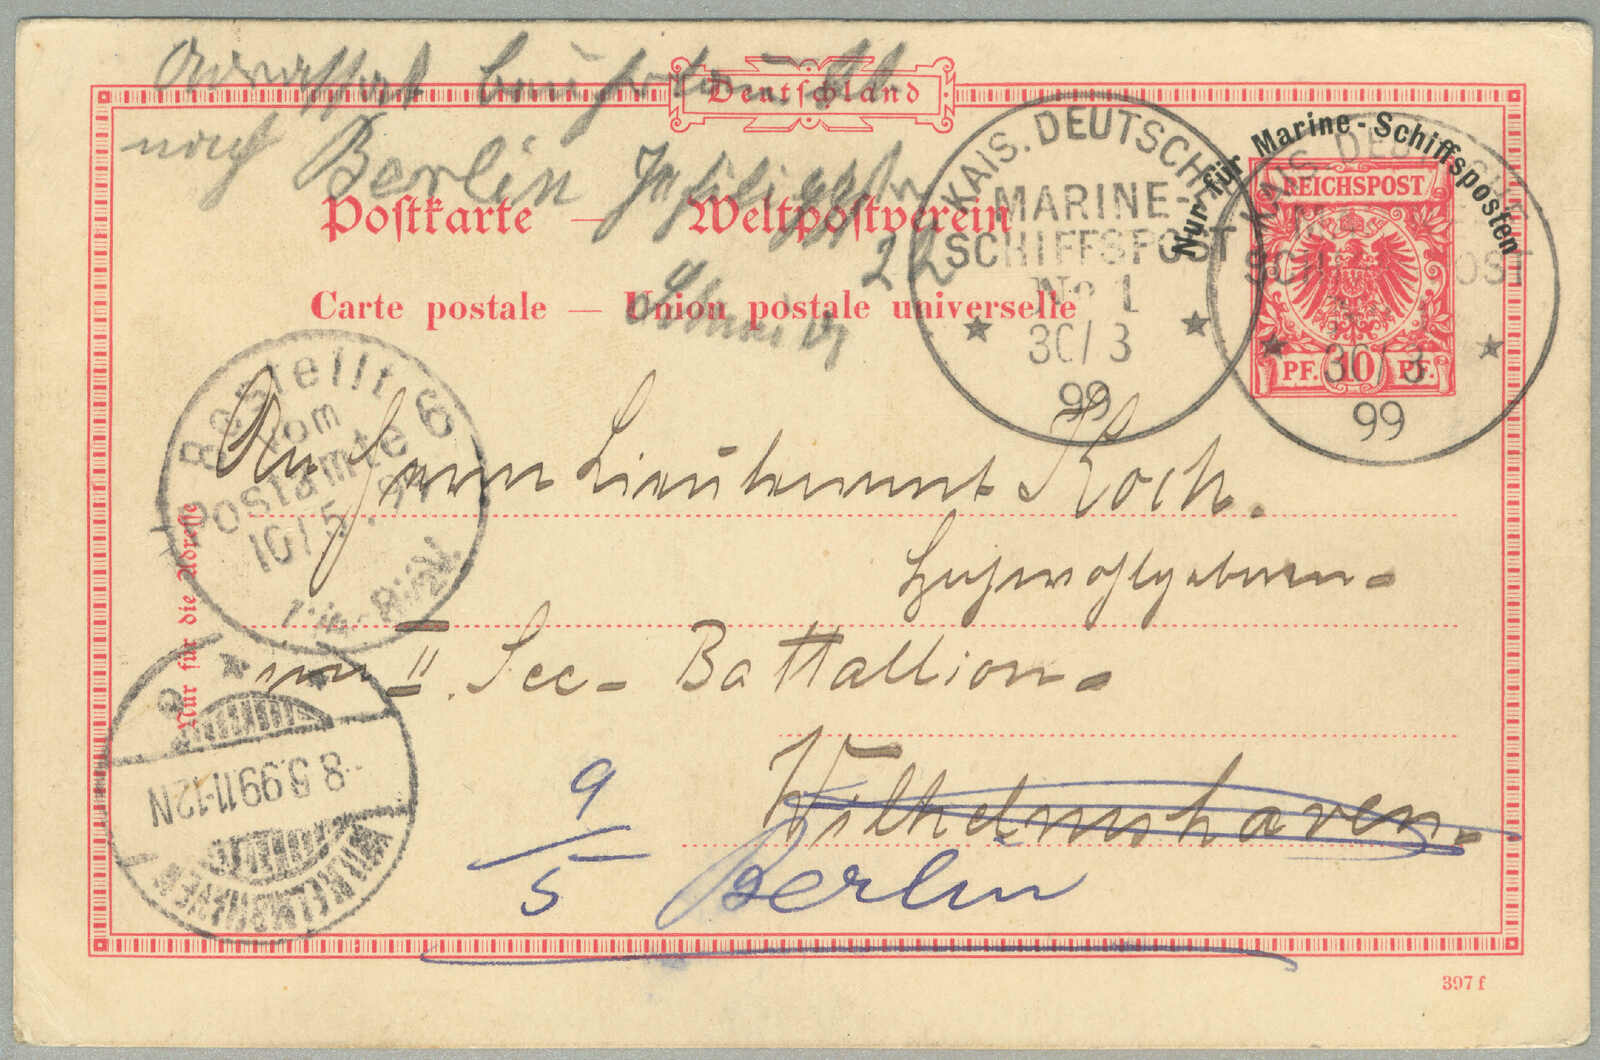 Deutschland
nach Berlin
22
Postkarte — Weltpostverein
Carte postale — Union postale universelle
Nur für Marine-Schiffsposten
REICHSPOST
PF. 10 PF.
KAIS. DEUTSCHE
MARINE-
SCHIFFSPOST
No 1
30/3
99
KAIS. DEUTSCHE
MARINE-
SCHIFFSPOST
No 1
30/3
99
Bestellt
vom
Postamte 6
10/5. 99
An Herrn Lieutenant Koch.
Hochwohlgeboren
vom II. See-Battallion
Wilhelmshaven.
9/5 Berlin
Nur für die Adresse
WILHELMSHAVEN
8.5.99 11-12N
397 f